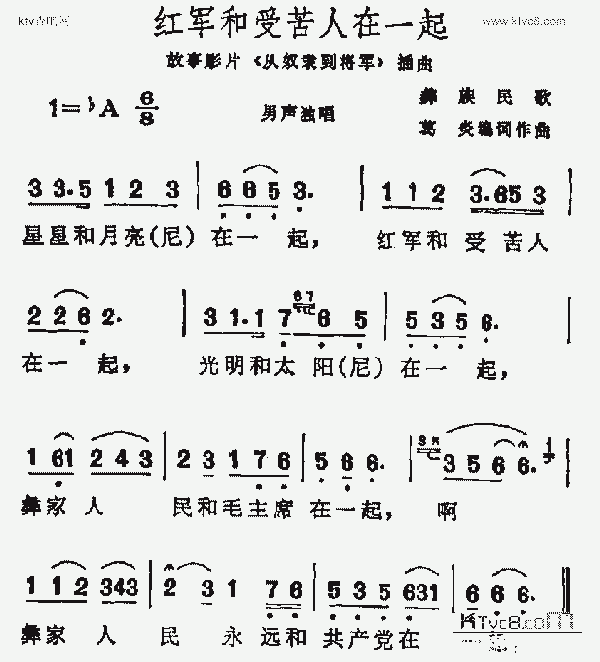 www.ktvc8.com
红军和受苦人在一起
故事影片《从奴隶到将军》插曲
1=♭A 6/8 男声独唱 彝族民歌
葛炎编词作曲
3 3·5 1 2 3 | 6 6 5 3· | 1 1 2 3·65 3 |
星星和月亮(尼)在一起, 红军和受苦人
2 2 6 2· | 3 1·1 7 67 6 5 | 5 3 5 6· |
在一起, 光明和太阳(尼)在一起,
1 61 2 4 3 | 2 3 1 7 6 | 5 6 6· | 3 5 6 6· |
彝家人 民和毛主席 在一起, 啊
1 1 2 343 | 2 3 1 7 6 | 5 3 5 631 | 6 6 6· ||
彝家人 民永远和 共产党在
KTvc8.com